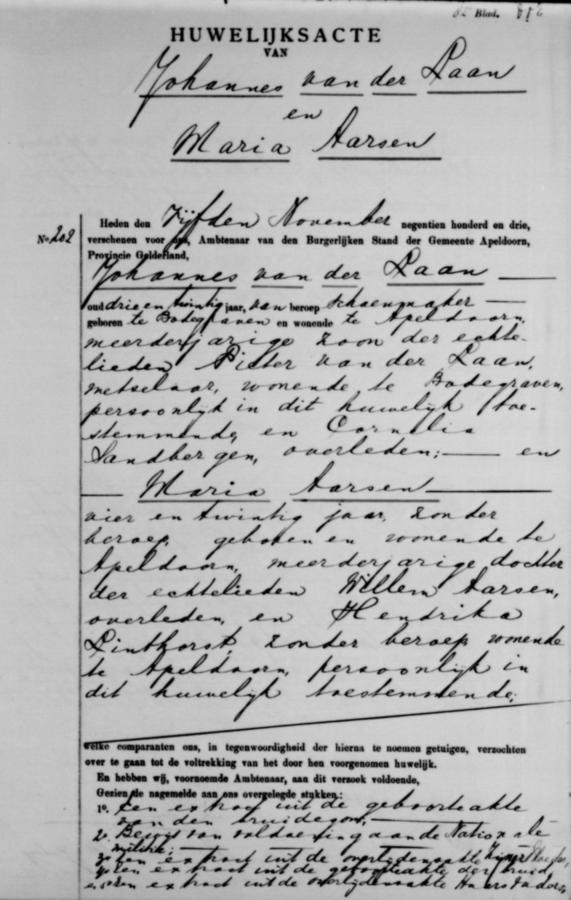 Blad.
HUWELIJKSACTE
VAN
Johannes van der Laan
en
Maria Aarsen
No. 202
Heden den Vijfden November negentien honderd en drie,
verschenen voor ons, Ambtenaar van den Burgerlijken Stand der Gemeente Apeldoorn,
Provincie Gelderland,
Johannes van der Laan
oud drie en twintig jaar, van beroep schoenmaker
geboren te Bodegraven en wonende te Apeldoorn,
meerderjarige zoon der echte-
lieden Pieter van der Laan,
metselaar, wonende te Bodegraven,
persoonlijk in dit huwelijk toe-
stemmende, en Cornelia
Sandbergen, overleden; en
Maria Aarsen
vier en twintig jaar, zonder
beroep, geboren en wonende te
Apeldoorn, meerderjarige dochter
der echtelieden Willem Aarsen,
overleden, en Hendrika
Linthorst, zonder beroep, wonende
te Apeldoorn, persoonlijk in
dit huwelijk toestemmende;
welke comparanten ons, in tegenwoordigheid der hierna te noemen getuigen, verzochten
over te gaan tot de voltrekking van het door hen voorgenomen huwelijk.
En hebben wij, voornoemde Ambtenaar, aan dit verzoek voldoende,
Gezien de nagemelde aan ons overgelegde stukken:
1o. Een extract uit de geboorteakte
van den bruidegom,
2o. Bewijs van voldoening aan de Nationale
militie;
3o een extract uit de overlijdensakte zijner Moeder,
4o een extract uit de geboorteakte der bruid
en 5o een extract uit de overlijdensakte haars vaders,